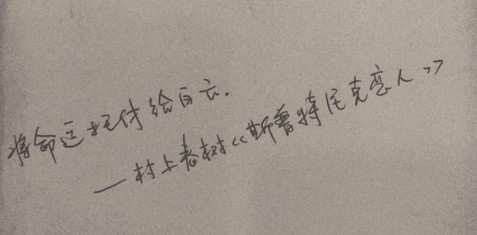 将命运托付给白云.
—村上春树《斯普特尼克恋人》